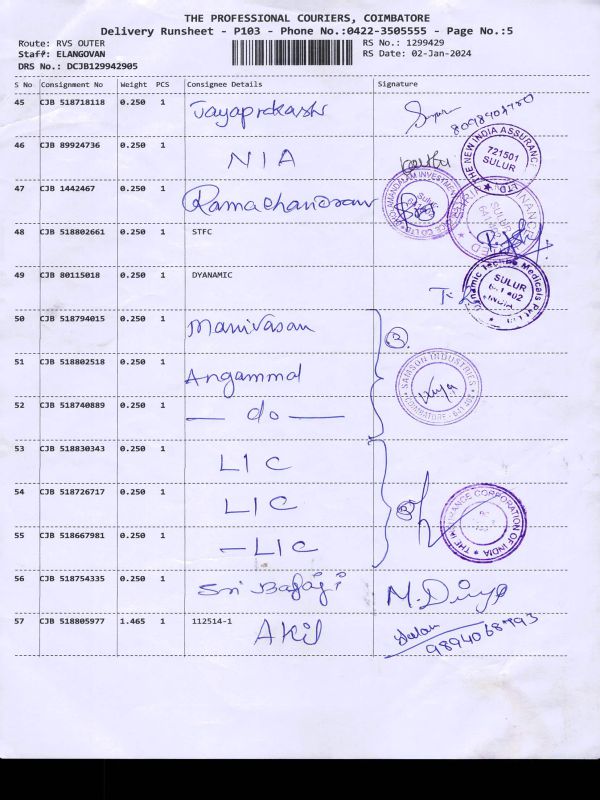 THE PROFESSIONAL COURIERS, COIMBATORE
Delivery Runsheet - P103 - Phone No.:0422-3505555 - Page No.:5
Route: RVS OUTER
RS No.: 1299429
Staff: ELANGOVAN
RS Date: 02-Jan-2024
DRS No.: DCJB129942905
S No Consignment No Weight PCS Consignee Details Signature
45 CJB 518718118 0.250 1 Jayaprakash
46 CJB 89924736 0.250 1 NIA
THE NEW INDIA ASSURANCE
721501
SULUR
47 CJB 1442467 0.250 1 Ramachandran
SULUR
48 CJB 518802661 0.250 1 STFC
49 CJB 80115018 0.250 1 DYANAMIC
Dynamic Techno Medicals Pvt Ltd
SULUR
641 402
INDIA
50 CJB 518794015 0.250 1 Manivasan
51 CJB 518802518 0.250 1 Angammal
③
SAMSON INDUSTRIES
COIMBATORE - 641 402
52 CJB 518740889 0.250 1 — do —
53 CJB 518830343 0.250 1 LIC
54 CJB 518726717 0.250 1 LIC
③
THE INSURANCE CORPORATION OF INDIA
55 CJB 518667981 0.250 1 — LIC
56 CJB 518754335 0.250 1 Sri Balaji M. Divya
57 CJB 518805977 1.465 1 112514-1
Akil